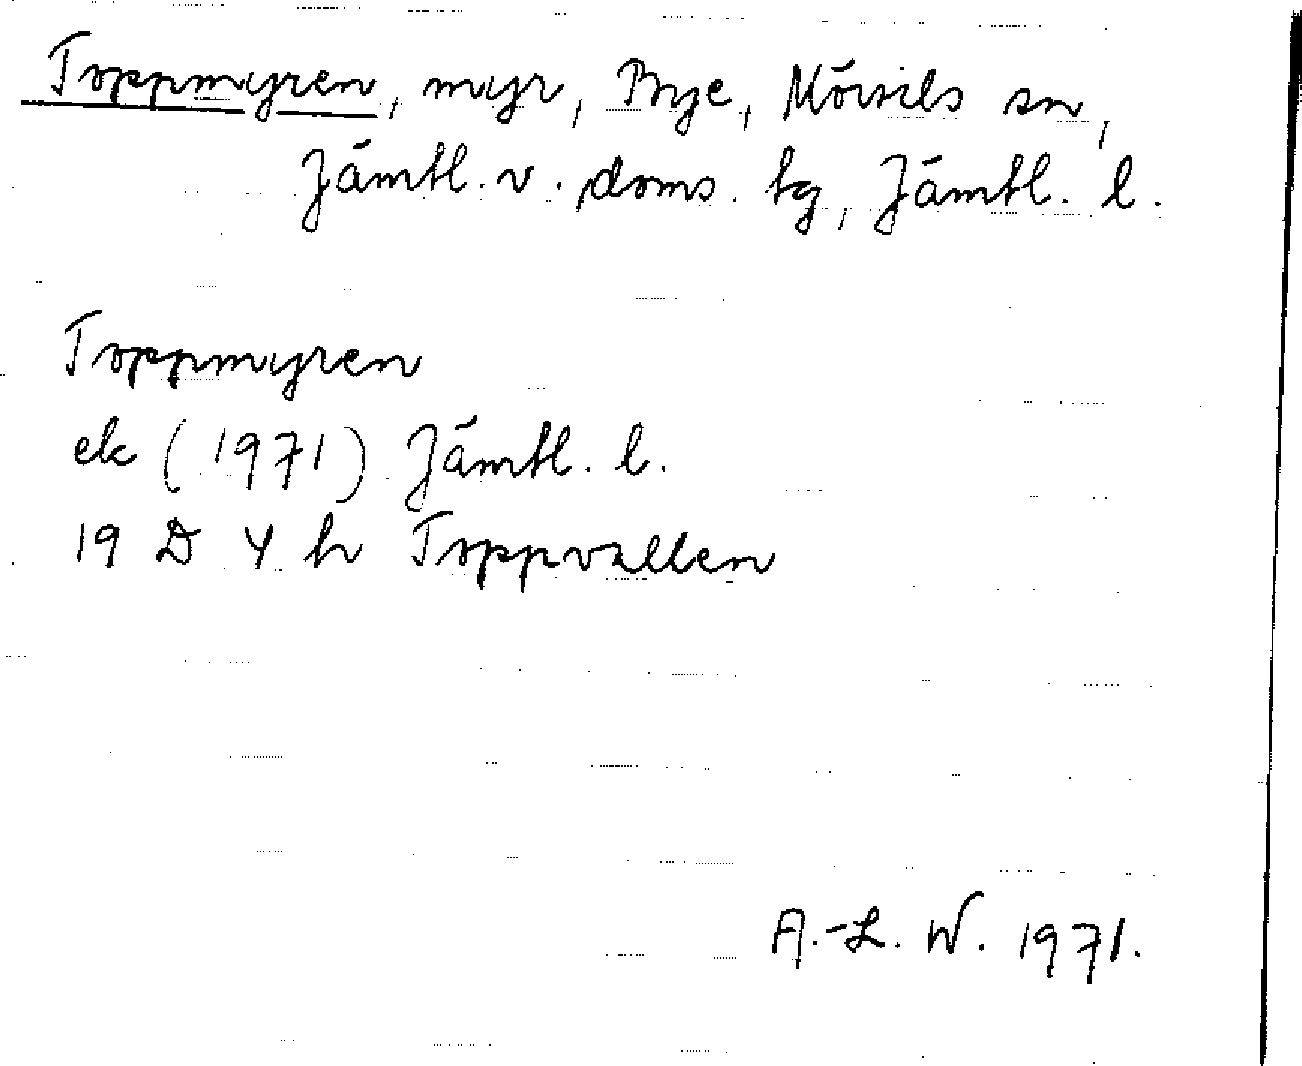 Toppmyren, myr, Bye, Mörsils sn,
Jämtl. v. doms. tg, Jämtl. l.
Toppmyren
ek (1971) Jämtl. l.
19 D 4 h Toppvallen
A.-L. W. 1971.